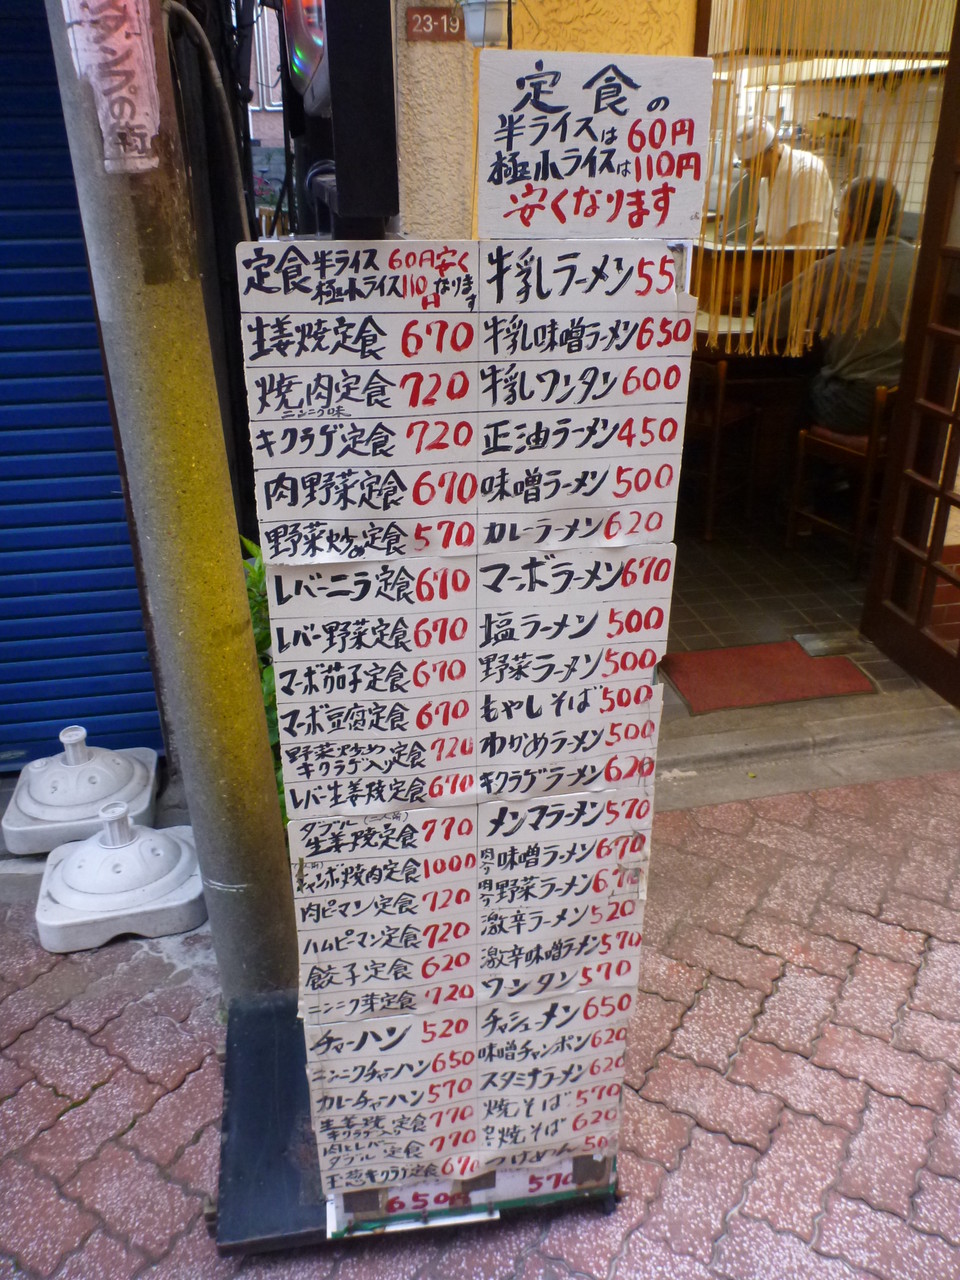 23-19
ダンプの街
定食の
半ライスは60円
極小ライスは110円
安くなります
定食 半ライス 60円安く
極小ライス110円 なります
生姜焼定食 670
焼肉定食 720
ニンニク味
キクラゲ定食 720
肉野菜定食 670
野菜炒め定食 570
レバーニラ定食 670
レバー野菜定食 670
マーボ茄子定食 670
マーボ豆腐定食 670
野菜炒め
キクラゲ入り定食 720
レバー生姜焼定食 670
ダブル(二人前)
生姜焼定食 770
ジャンボ焼肉定食 1000
肉ピーマン定食 720
ハムピーマン定食 720
餃子定食 620
ニンニク芽定食 720
チャーハン 520
ニンニクチャーハン 650
カレーチャーハン 570
生姜焼
キクラゲ入り 定食 770
肉とレバー
ダブル 定食 770
玉葱キクラゲ定食 670
650円
牛乳ラーメン 55
牛乳味噌ラーメン 650
牛乳ワンタン 600
正油ラーメン 450
味噌ラーメン 500
カレーラーメン 620
マーボラーメン 670
塩ラーメン 500
野菜ラーメン 500
もやしそば 500
わかめラーメン 500
キクラゲラーメン 620
メンマラーメン 570
肉入り味噌ラーメン 670
肉入り野菜ラーメン 670
激辛ラーメン 520
激辛味噌ラーメン 570
ワンタン 570
チャーシューメン 650
味噌チャンポン 620
スタミナラーメン 620
焼そば 570
焼そば 620
つけめん 50
570